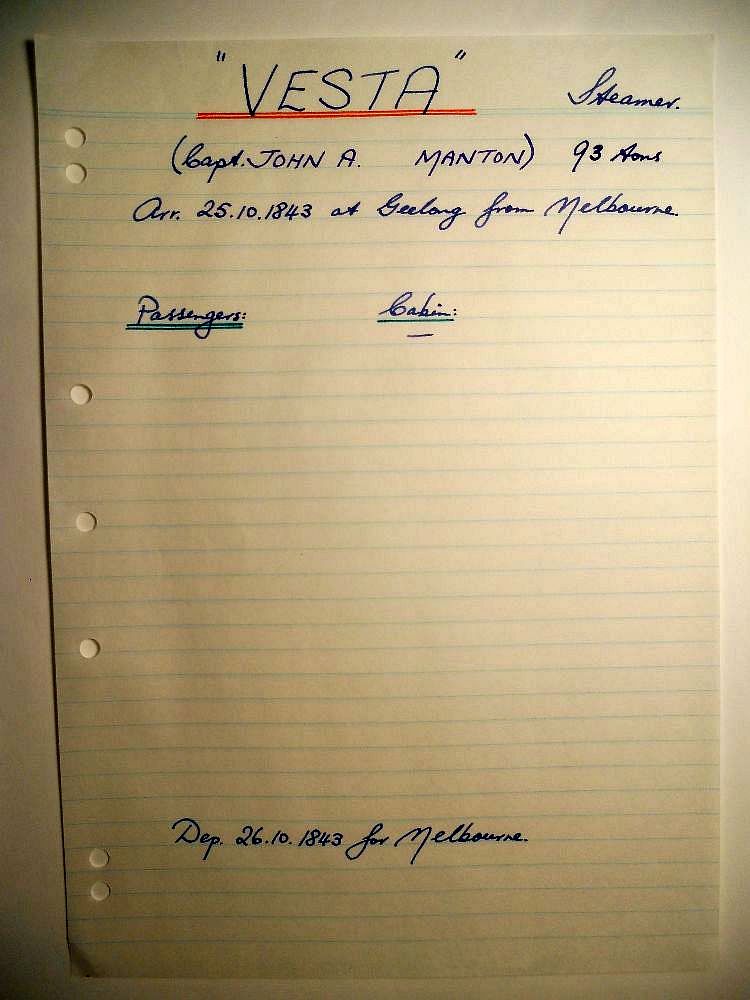 "VESTA" Steamer.
(Capt. JOHN A. MANTON) 93 tons
Arr. 25.10.1843 at Geelong from Melbourne.
Passengers: Cabin:
—
Dep. 26.10.1843 for Melbourne.